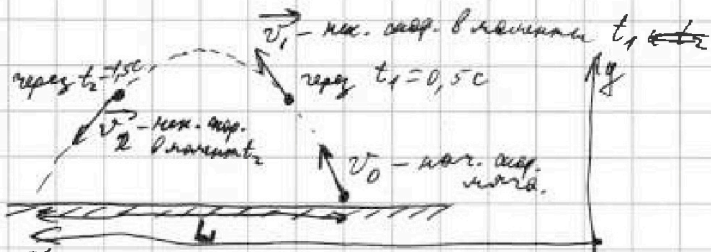 v₁ – нек. скор. в моменты t₁
через t₂=1,5с
через t₁=0,5с
y
v₂ – нек. скор.
в момент t₂
v₀ – нач. скор.
мяча.
L